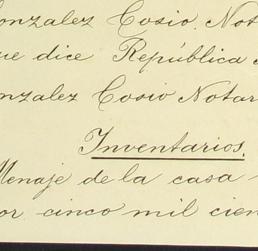 Gonzalez Cosio. Not
ue dice República
onzalez Cosio Notar
Inventarios.
Menaje de la casa
or cinco mil cien